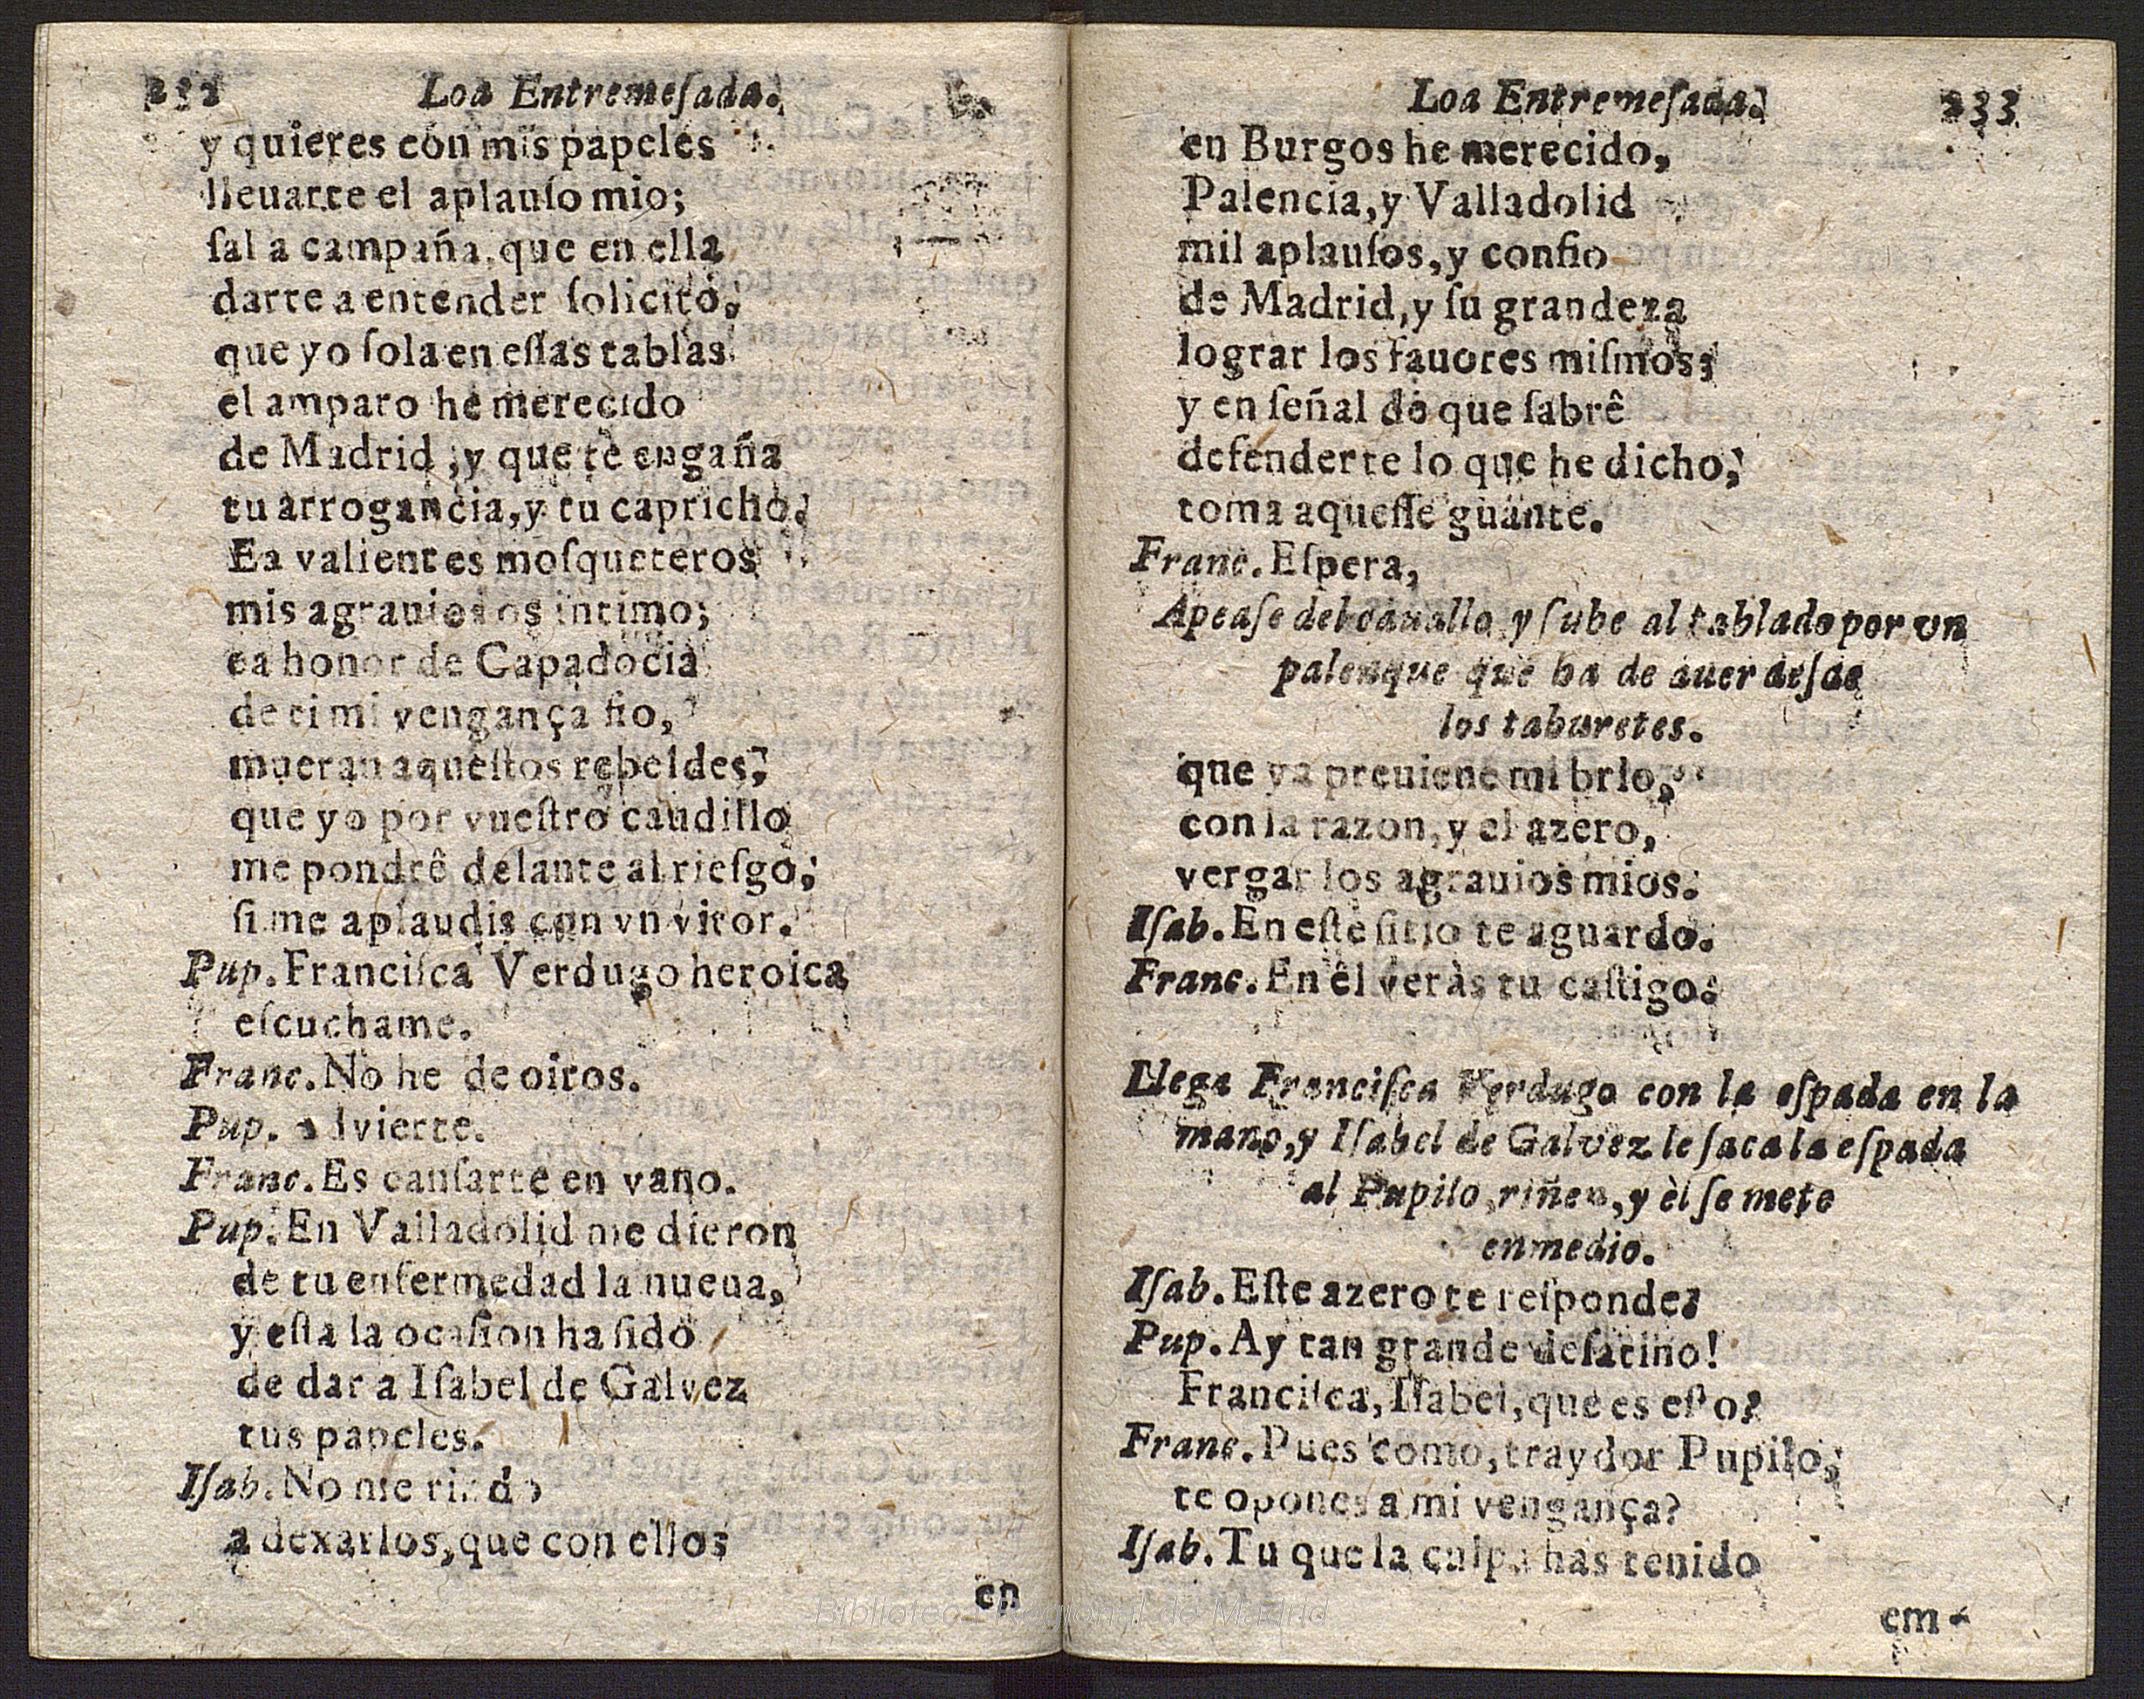 232 Loa Entremeſada.
y quieres con mis papeles
lleuarte el aplauſo mio;
ſal a campaña, que en ella
darte a entender ſolicito,
que yo ſola en eſſas tablas
el amparo he merecido
de Madrid, y que te engaña
tu arrogancia, y tu capricho.
Ea valientes moſqueteros
mis agrauios os intimo;
ea honor de Capadocia
de ti mi vengança fio,
mueran aqueſtos rebeldes,
que yo por vueſtro caudillo
me pondrê delante al rieſgo,
ſi me aplaudis con vn vitor.
Pup. Franciſca Verdugo heroica
eſcuchame.
Franc. No he de oiros.
Pup. Advierte.
Franc. Es canſarte en vano.
Pup. En Valladolid me dieron
de tu enfermedad la nueua,
y eſta la ocaſion ha ſido
de dar a Iſabel de Galvez
tus papeles.
Iſab. No me rindo
a dexarlos, que con ellos
en
Loa Entremeſada. 233
en Burgos he merecido,
Palencia, y Valladolid
mil aplauſos, y confio
de Madrid, y ſu grandeza
lograr los fauores miſmos;
y en ſeñal de que ſabrê
defenderte lo que he dicho,
toma aqueſſe guante.
Franc. Eſpera,
Apeaſe del cauallo, y ſube al tablado por vn
palenque que ha de auer deſde
los taburetes.
que ya preuiene mi brio,
con la razon, y el azero,
vergar los agrauios mios.
Iſab. En eſte ſitio te aguardo.
Franc. En êl veràs tu caſtigo.
Llega Franciſca Verdugo con la eſpada en la
mano, y Iſabel de Galvez le ſaca la eſpada
al Pupilo, riñen, y èl ſe mete
en medio.
Iſab. Eſte azero te reſponde.
Pup. Ay tan grande deſatino!
Franciſca, Iſabel, que es eſto?
Franc. Pues como, traydor Pupilo,
te opones a mi vengança?
Iſab. Tu que la culpa has tenido
em-
Biblioteca Regional de Madrid